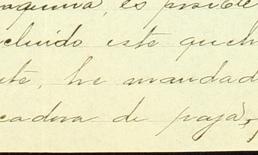 aquina, es posible
cluido este queh
te, he mandad
cadora de paja,